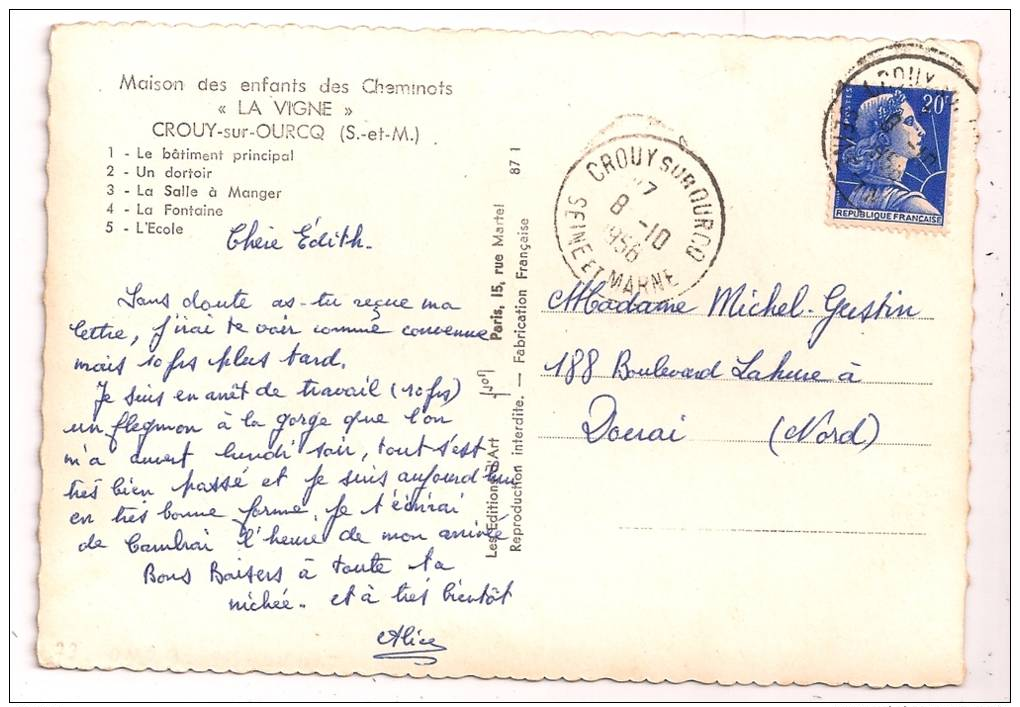 Maison des enfants des Cheminots
« LA VIGNE »
CROUY-sur-OURCQ (S.-et-M.)
1 - Le bâtiment principal
2 - Un dortoir
3 - La Salle à Manger
4 - La Fontaine
5 - L'Ecole
Chère Édith.
Sans doute as-tu reçue ma
lettre, j'irai te voir comme convenue
mais 10 jrs plus tard.
Je suis en arrêt de travail (10 jrs)
un flegmon à la gorge que l'on
m'a ouvert lundi soir, tout s'est
très bien passé et je suis aujourd'hui
en très bonne forme, je t'écrirai
de Cambrai l'heure de mon arrivée
Bons Baisers à toute ta
nichée. et à très bientôt
Alice
Les Editions d'Art
Paris, 15, rue Martel
87 1
Reproduction interdite. — Fabrication Française
CROUY SUR OURCQ
17
8 -10
1956
SEINE ET MARNE
POSTES
20F
REPUBLIQUE FRANÇAISE
Madame Michel-Gustin
188 Boulevard Lahure à
Douai (Nord)